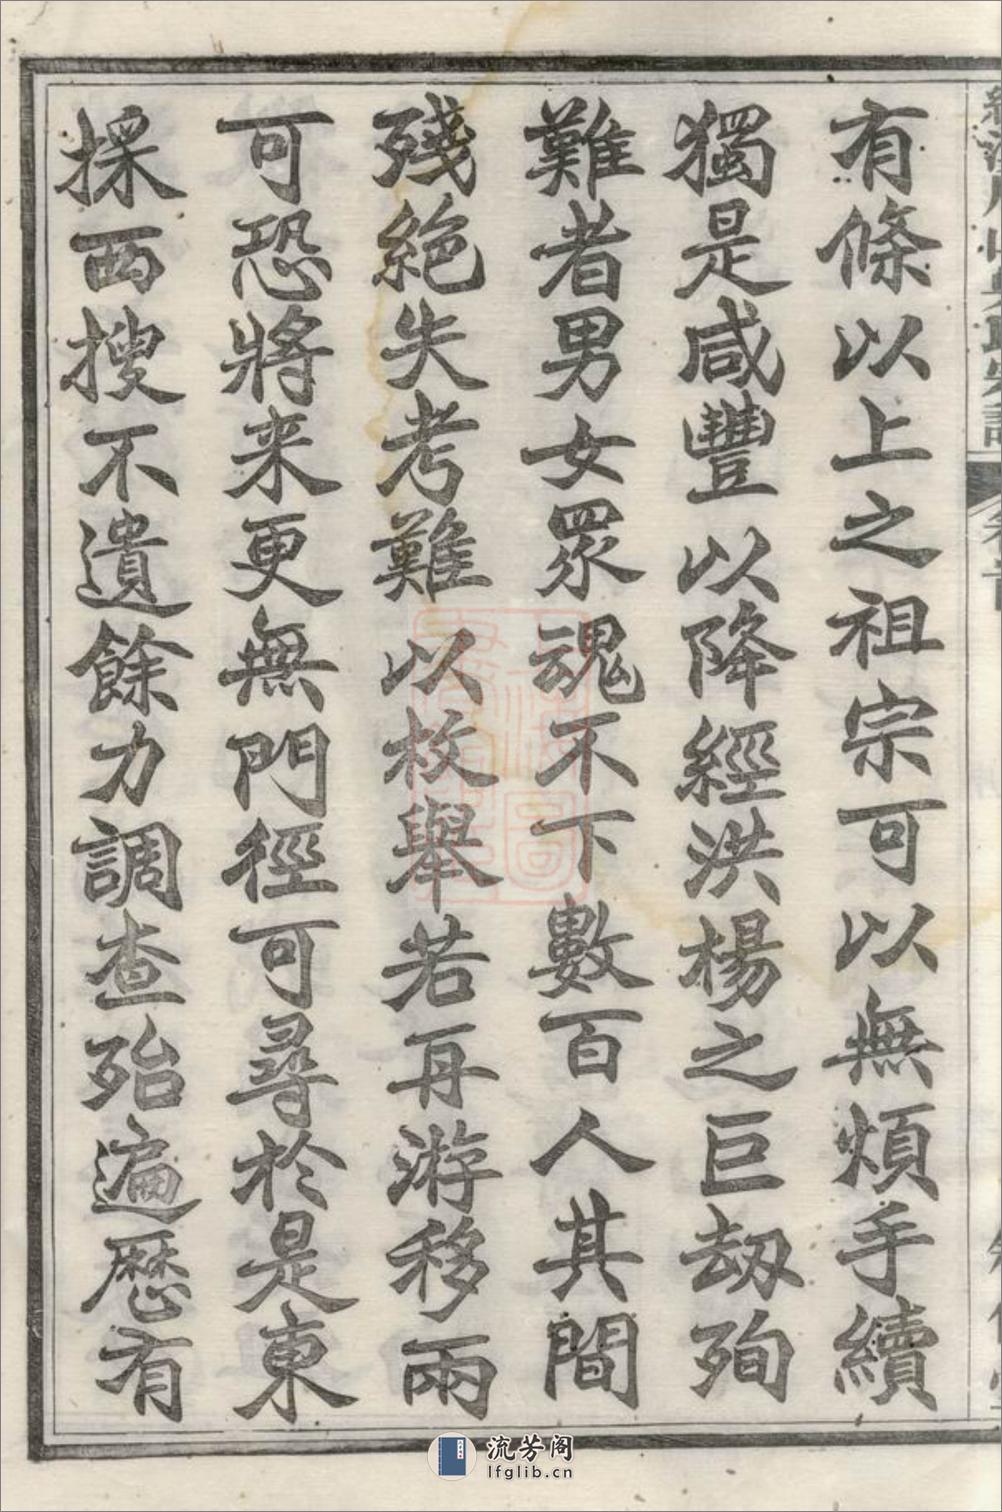 有條以上之祖宗可以無煩手續
獨是咸豐以降經洪楊之巨劫殉
難者男女眾魂不下數百人其間
殘絕失考難以枚舉若再游移兩
可恐將来更無門徑可尋於是東
採西搜不遺餘力調查殆遍歷有
流芳阁
lfglib.cn